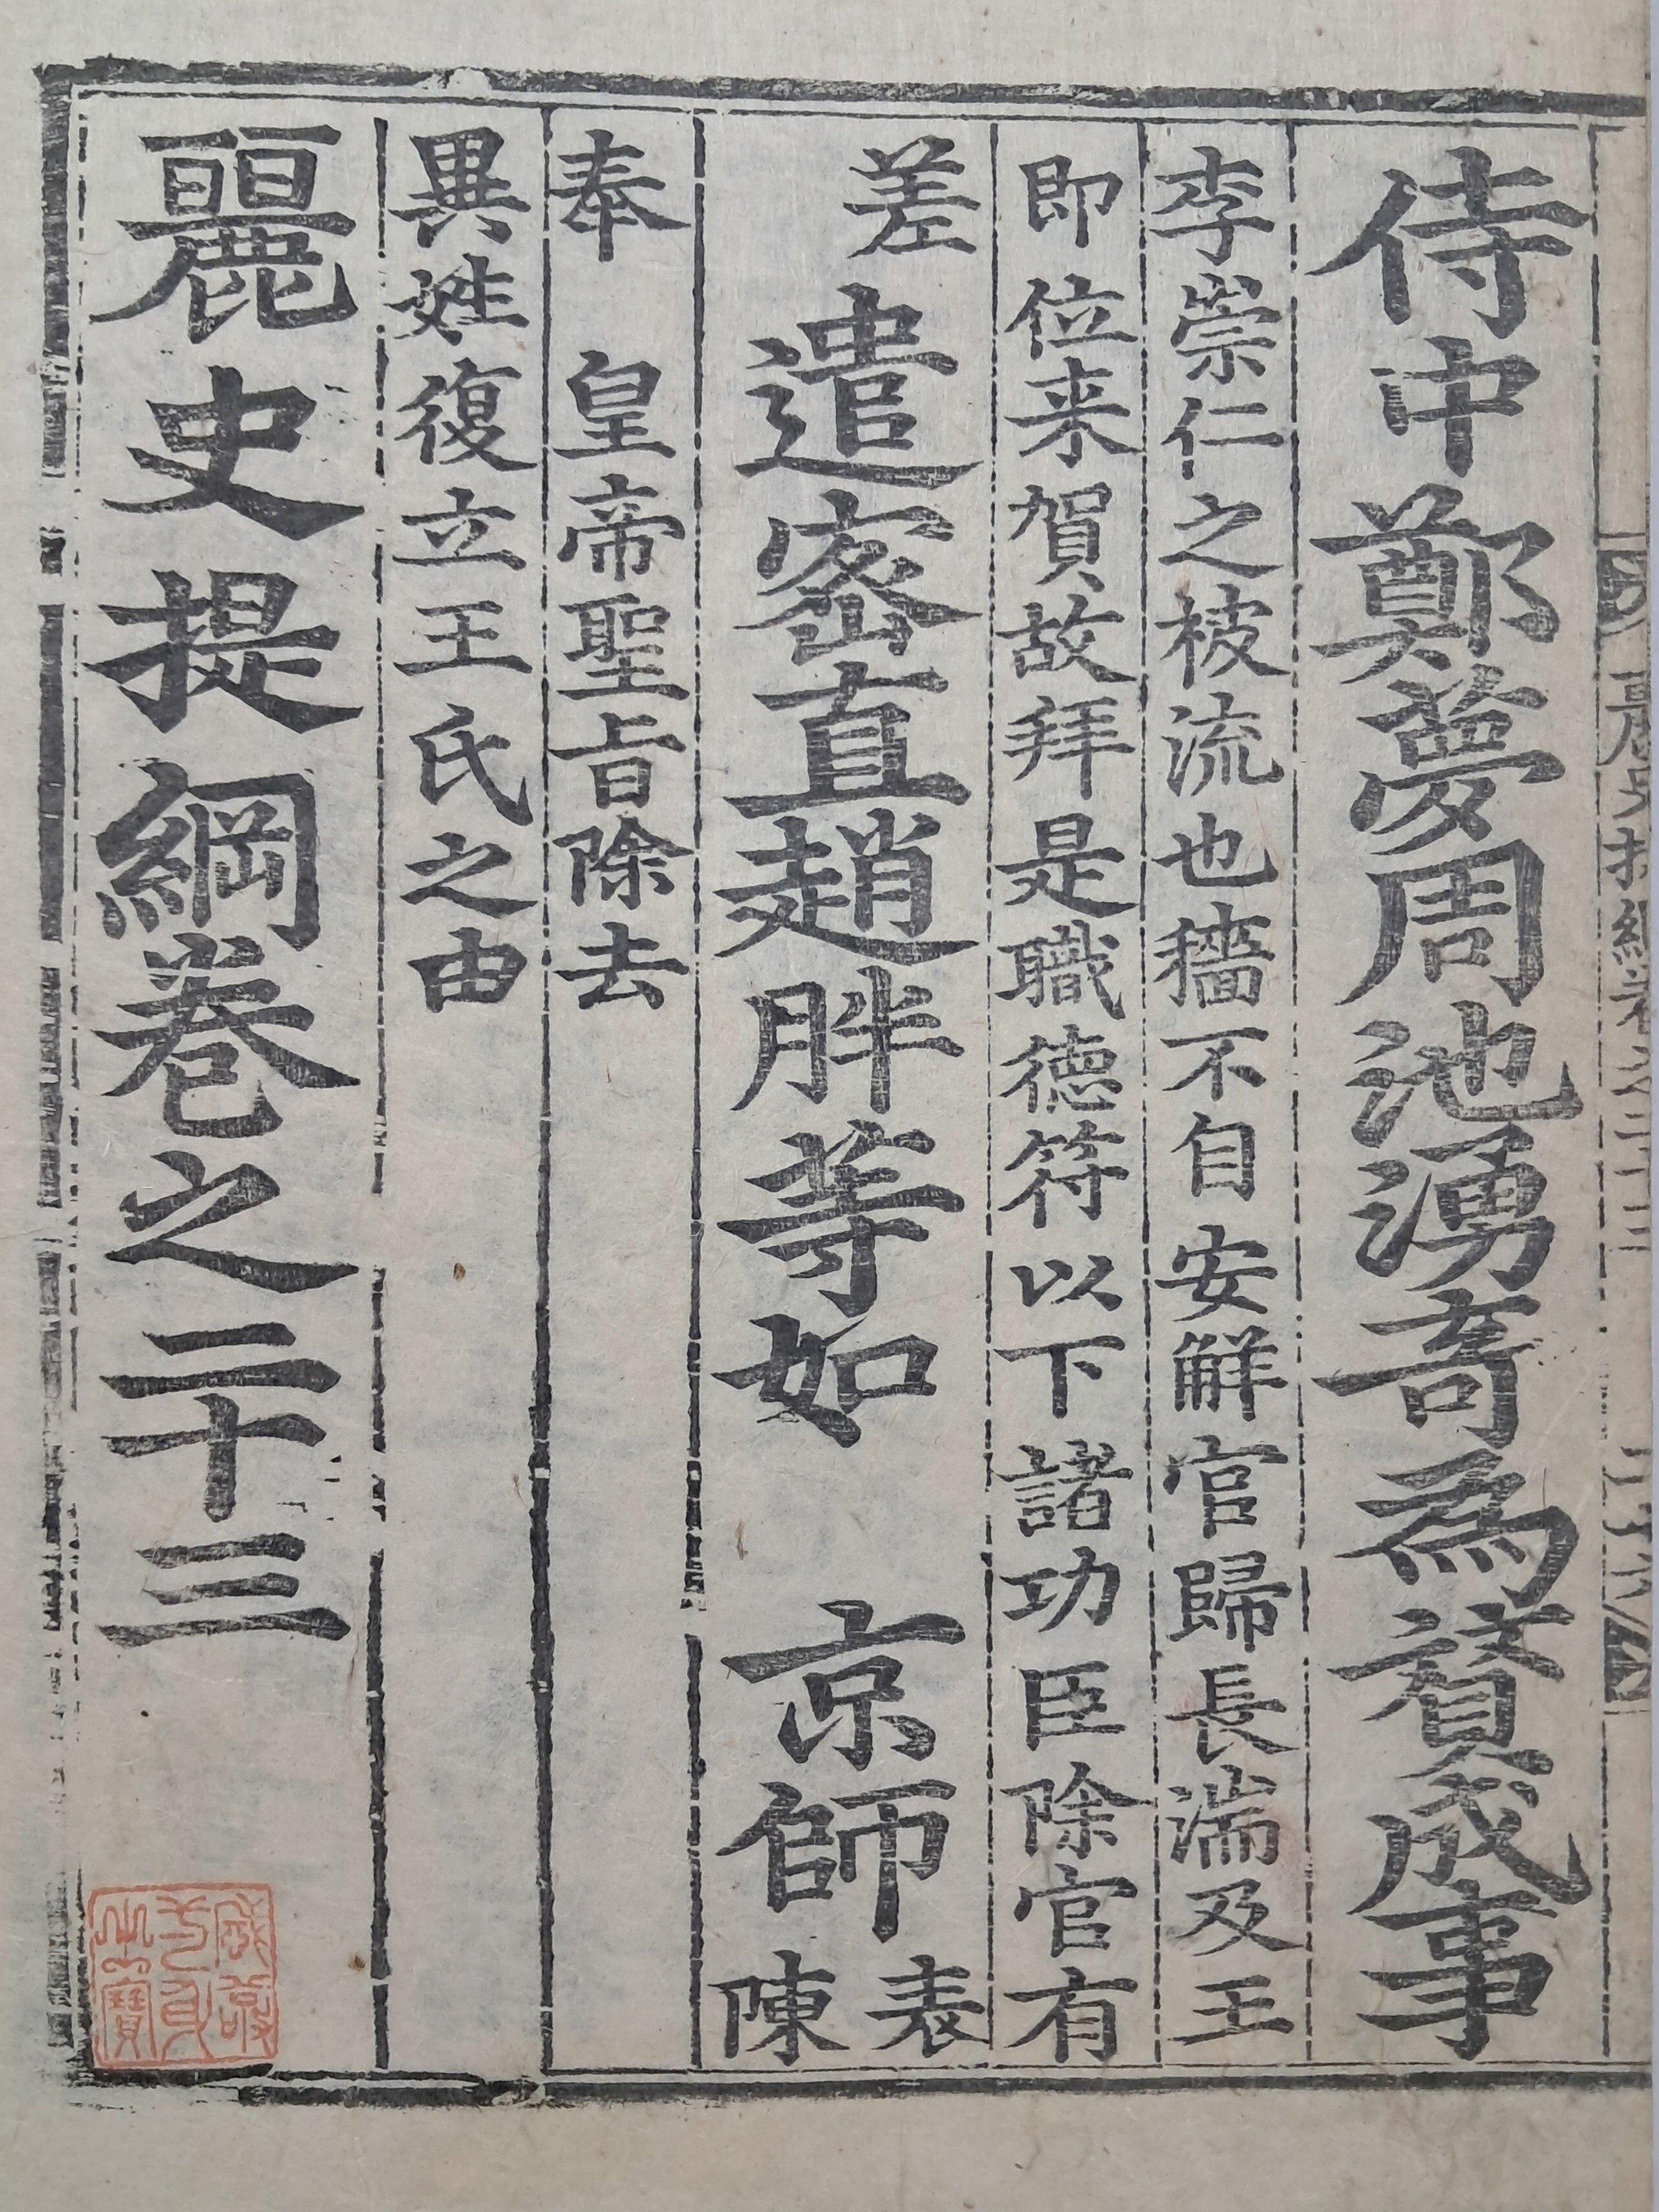 侍中鄭夢周池湧竒為賛成事
李崇仁之被流也穡不自安觧官歸長湍及王
即位来賀故拜是職徳符以下諸功臣除官有
差
遣密直趙胖等如 京師
表
陳
奉 皇帝聖旨除去
異姓復立王氏之由
麗史提綱卷之二十三